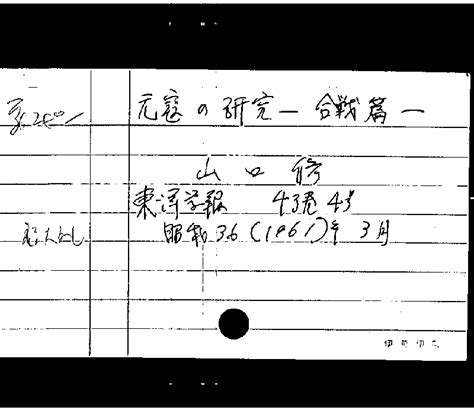 元寇の研究―合戦篇―
山口修
東洋学報 43巻4号
昭和36(1961)年3月